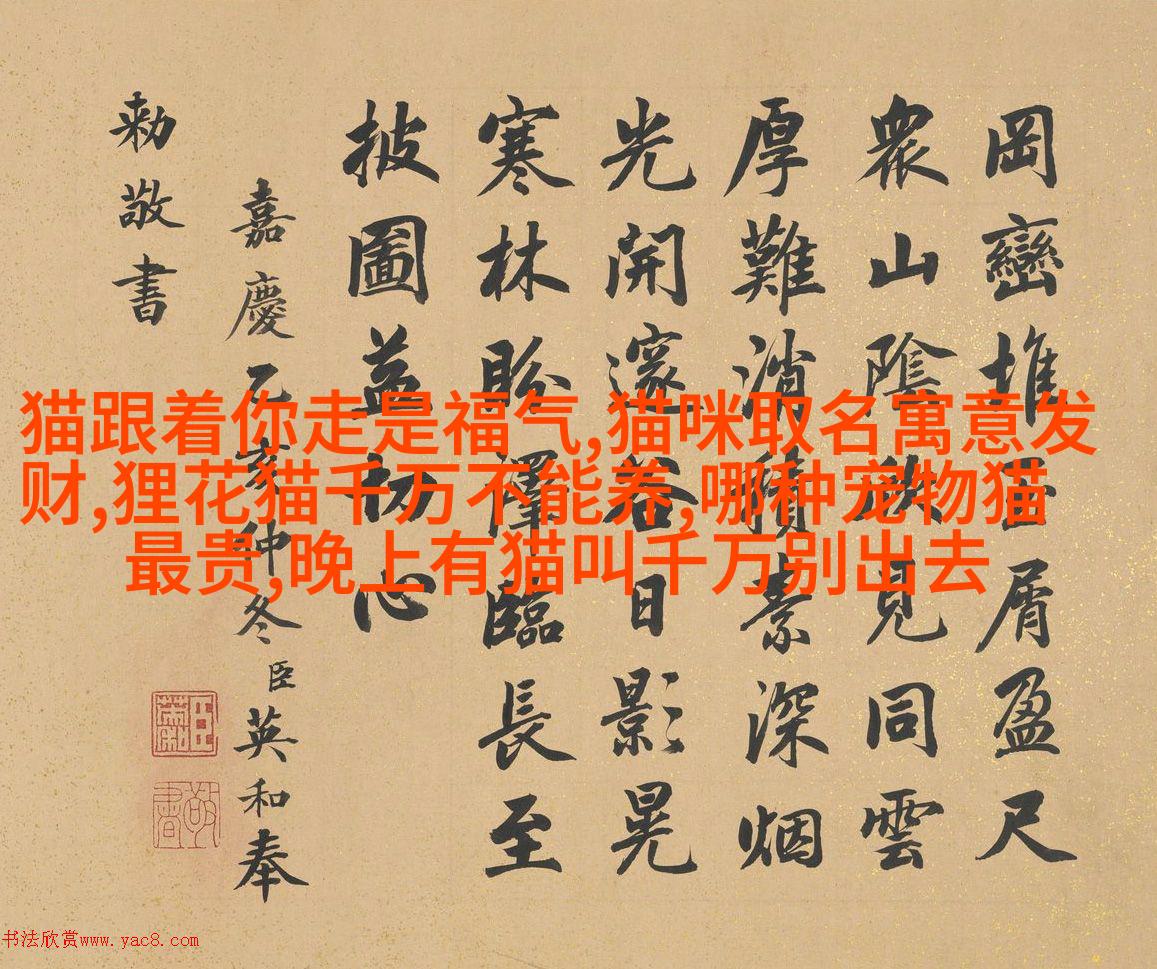 岡巒堆玉屑盈尺
衆山陰映見同雲
厚難消積素深烟
光開邃谷日影晃
寒林盼澤臨長至
披圖益切心
嘉慶乙亥仲冬臣英和奉
勅敬書
猫跟着你走是福气,猫咪取名寓意发
财,狸花猫千万不能养,哪种宠物猫
最贵,晚上有猫叫千万别出去
书法欣赏www.yac8.com